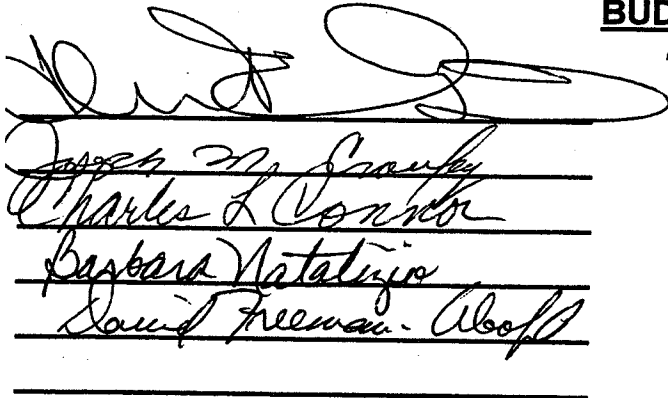 BUD
Joseph M
Charles L Connor
Barbara Natalizio
David Freeman-